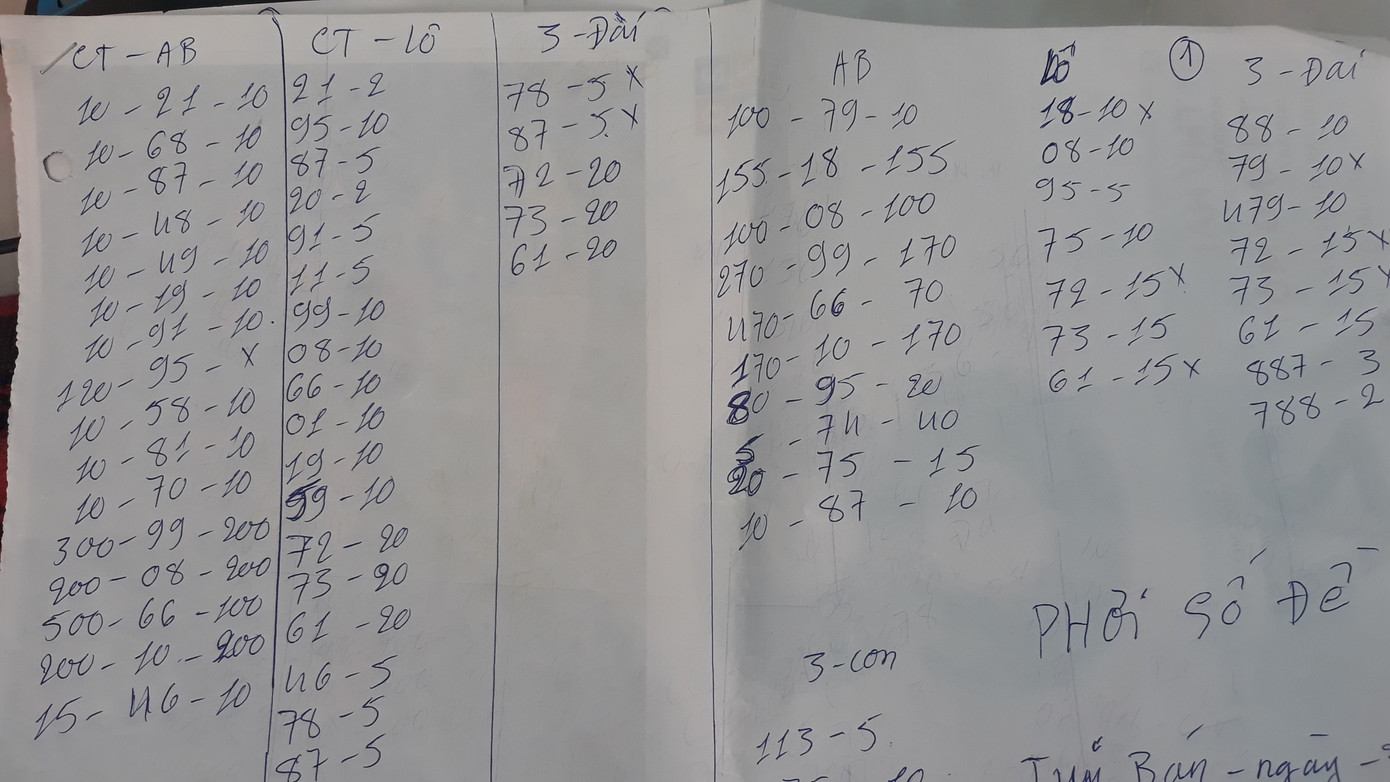 CT - AB
10 - 21 - 10
10 - 68 - 10
10 - 87 - 10
10 - 48 - 10
10 - 49 - 10
10 - 19 - 10
10 - 91 - 10.
120 - 95 - x
10 - 58 - 10
10 - 81 - 10
10 - 70 - 10
300 - 99 - 200
200 - 08 - 200
500 - 66 - 100
200 - 10 - 200
15 - 46 - 10
CT - Lô
21 - 2
95 - 10
87 - 5
20 - 2
91 - 5
11 - 5
99 - 10
08 - 10
66 - 10
01 - 10
19 - 10
59 - 10
72 - 20
73 - 20
61 - 20
46 - 5
78 - 5
87 - 5
3 - Đài
78 - 5 x
87 - 5. x
72 - 20
73 - 20
61 - 20
AB
100 - 79 - 10
155 - 18 - 155
100 - 08 - 100
270 - 99 - 170
470 - 66 - 70
170 - 10 - 170
80 - 95 - 20
5 - 74 - 40
20 - 75 - 15
10 - 87 - 10
3 - con
113 - 5
Lô
18 - 10 x
08 - 10
95 - 5
75 - 10
72 - 15 x
73 - 15
61 - 15 x
1
3 - Đài
88 - 10
79 - 10 x
479 - 10
72 - 15 x
73 - 15 x
61 - 15
887 - 3
788 - 2
PHƠI SỐ ĐỀ
Bán - ngày -